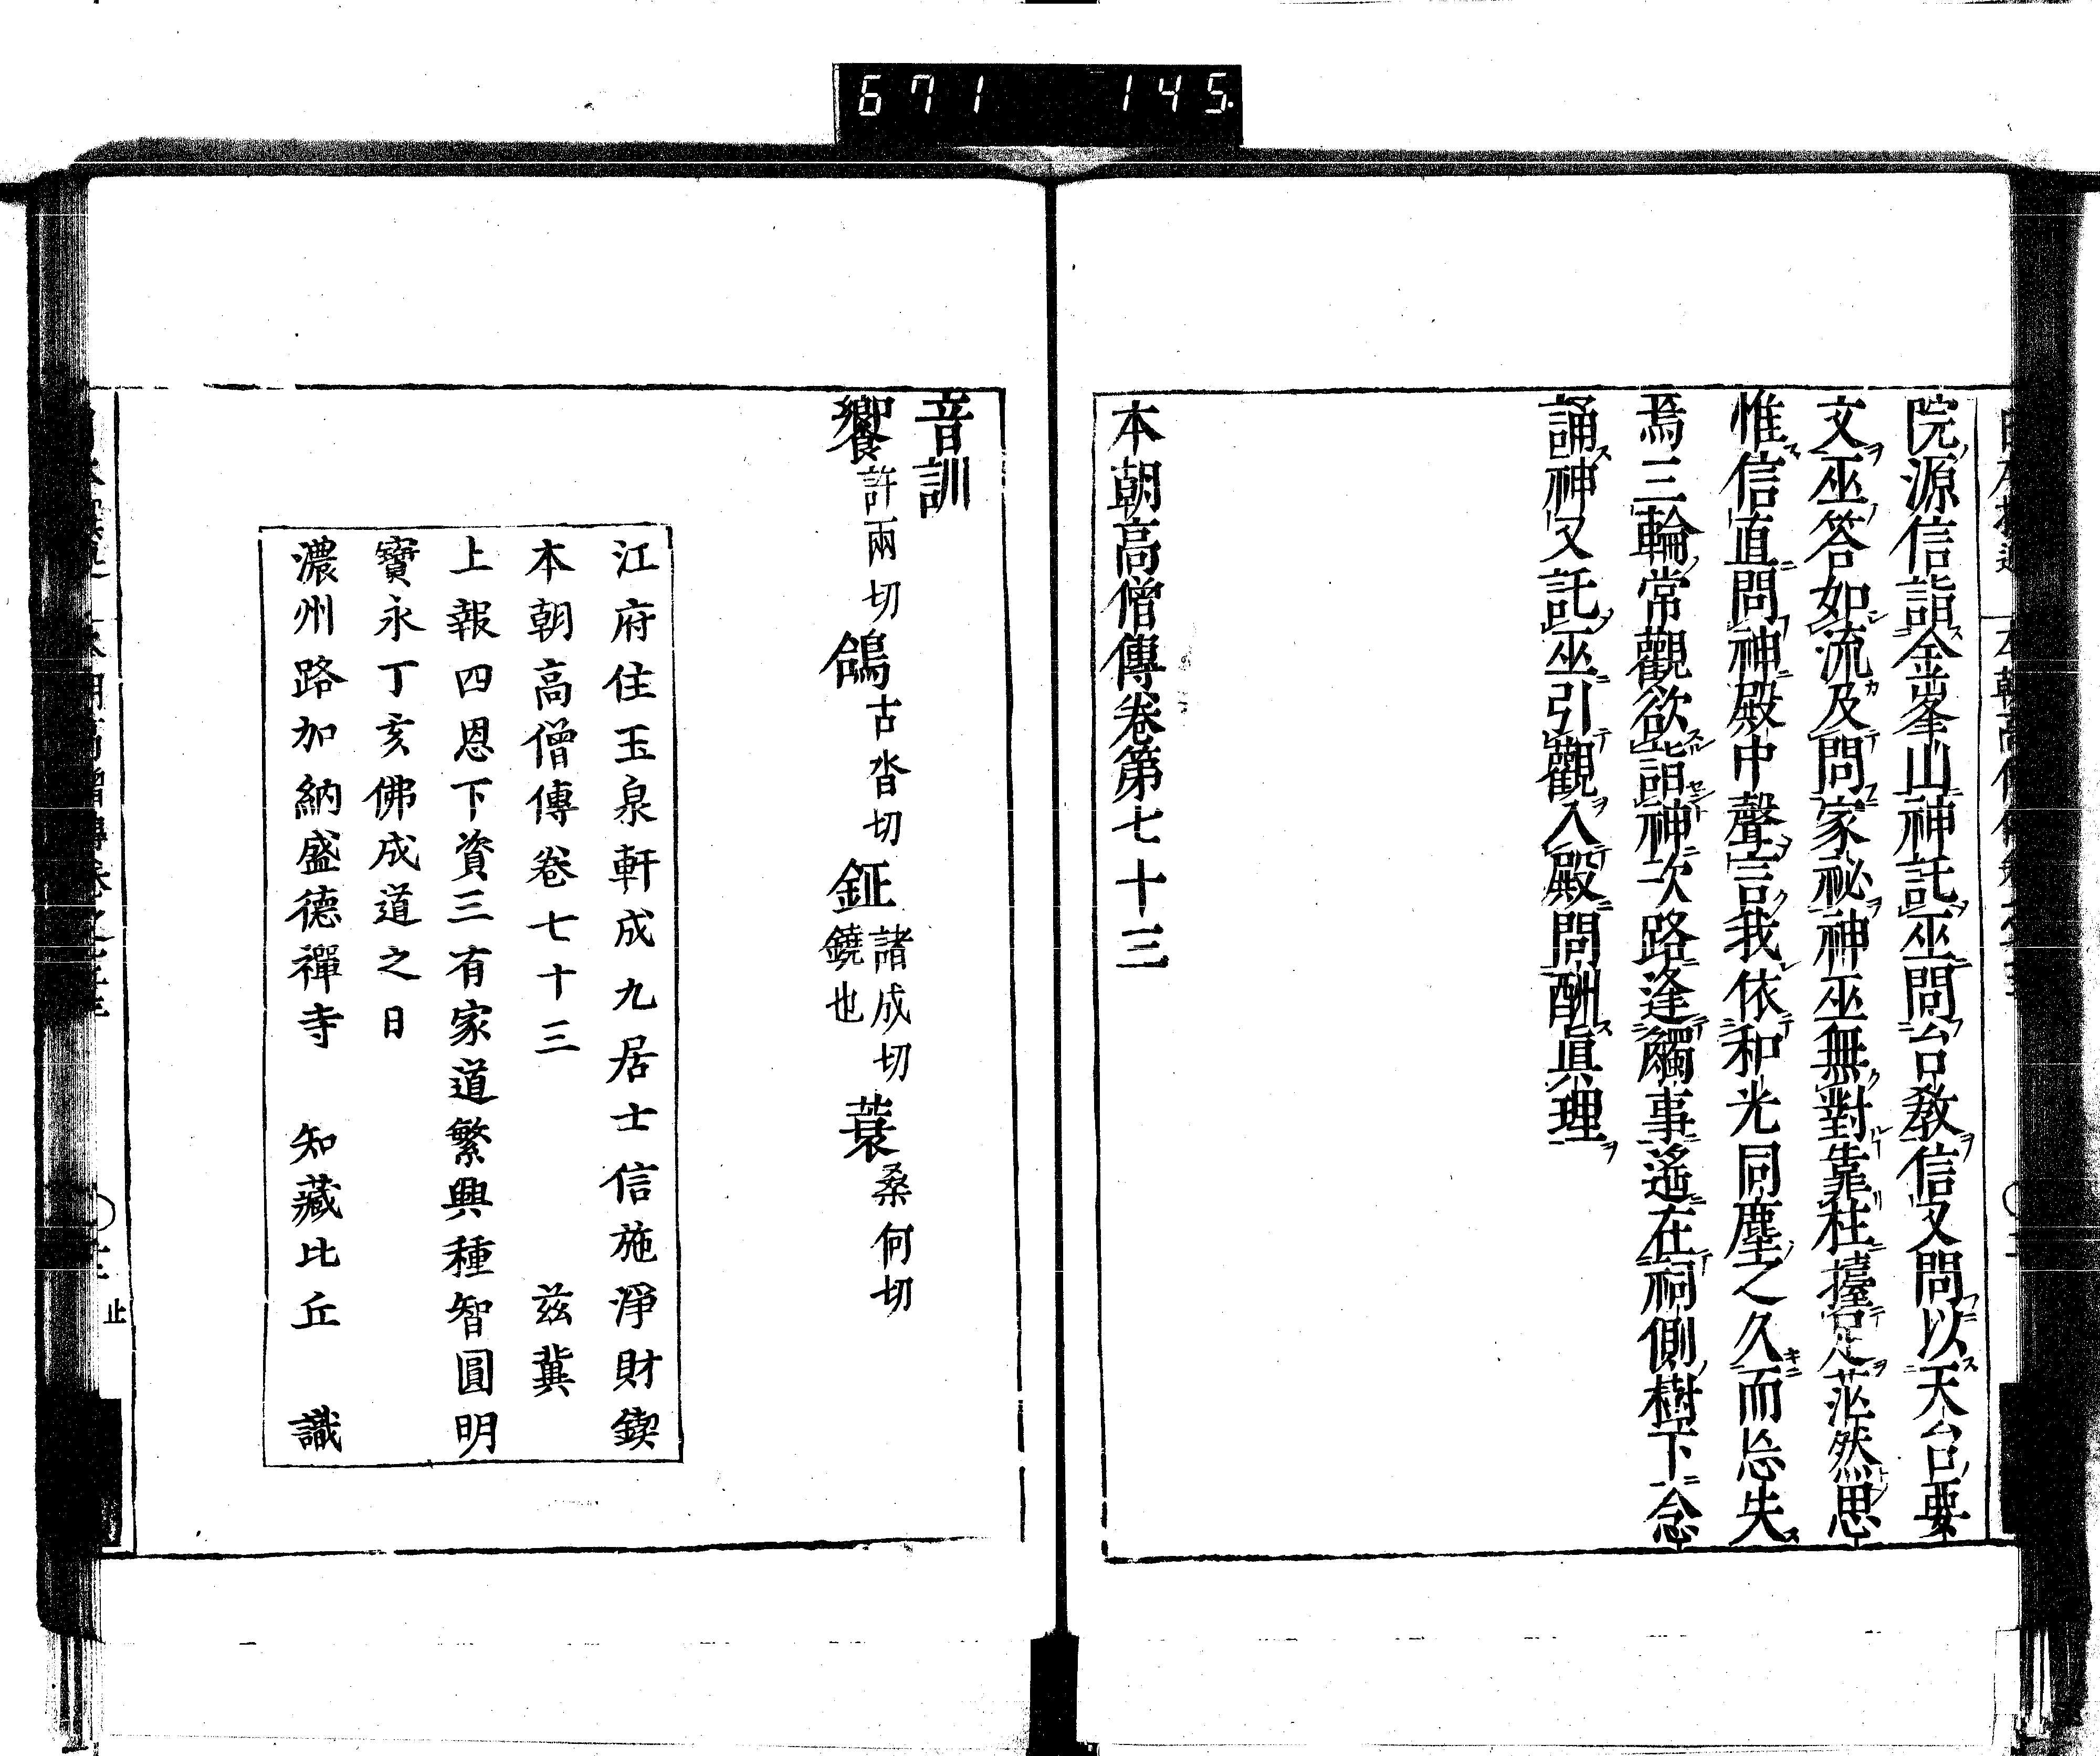 671 145.
院源信詣金峯山神託巫問台教信又問以天台要
文巫答如流及問家祕神巫無對靠柱擡足茫然思
惟信直問神殿中聲言我依和光同塵之久而忘失
焉三輪常觀欲詣神次路逢觸事遙在祠側樹下念
誦神又託巫引觀入殿問酬眞理
本朝高僧傳卷第七十三
音訓
饗許兩切鴿古沓切鉦諸成切鐃也蓑桑何切
江府住玉泉軒成九居士信施淨財鍥
本朝高僧傳卷七十三 茲冀
上報四恩下資三有家道繁興種智圓明
寶永丁亥佛成道之日
濃州路加納盛德禪寺 知藏比丘 識
止